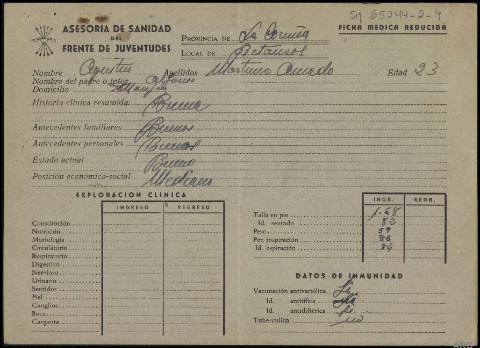 ASESORIA DE SANIDAD
DEL
FRENTE DE JUVENTUDES
PROVINCIA DE La Coruña
LOCAL DE Betanzos
FICHA MEDICA REDUCIDA
Nombre Agustin Apellidos Martinez Edad 23
Nombre del padre o tutor Alfonso
Domicilio
Historia clínica resumida: Buena
Antecedentes familiares Buenos
Antecedentes personales Buenos
Estado actual Bueno
Posición económico-social Mediana
EXPLORACION CLINICA
INGRESO REGRESO
Constitución
Nutrición
Morfología
Circulatorio
Respiratorio
Digestivo
Nervioso
Urinario
Sentidos
Piel
Ganglios
Boca
Garganta
INGR. REGR.
Talla en pie 1.68
Id. sentado 82
Peso 59
Per. inspiración 86
Id. espiración 84
DATOS DE INMUNIDAD
Vacunación antivariólica Si
Id. antitífica
Id. antidiftérica Si
Tuberculina